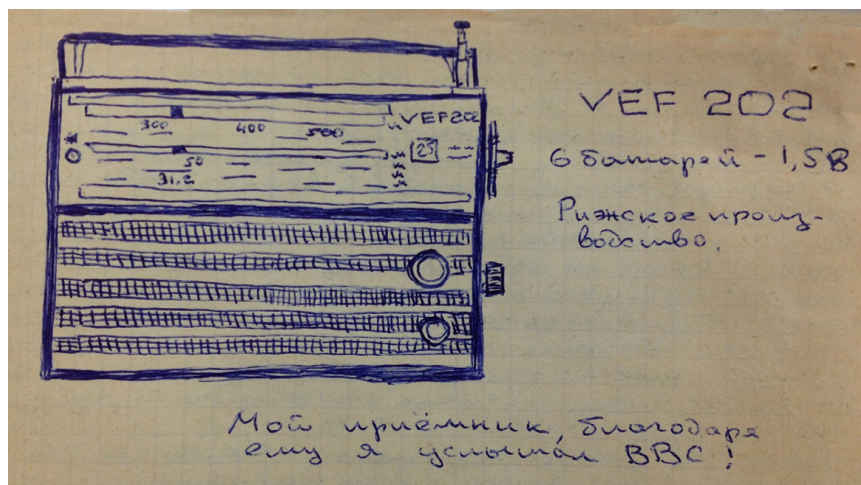 VEF202
300 400 500
25
50
31.2
VEF 202
6 батарей - 1,5В
Рижское произ-
водство.
Мой приёмник, благодаря
ему я услышал BBC!